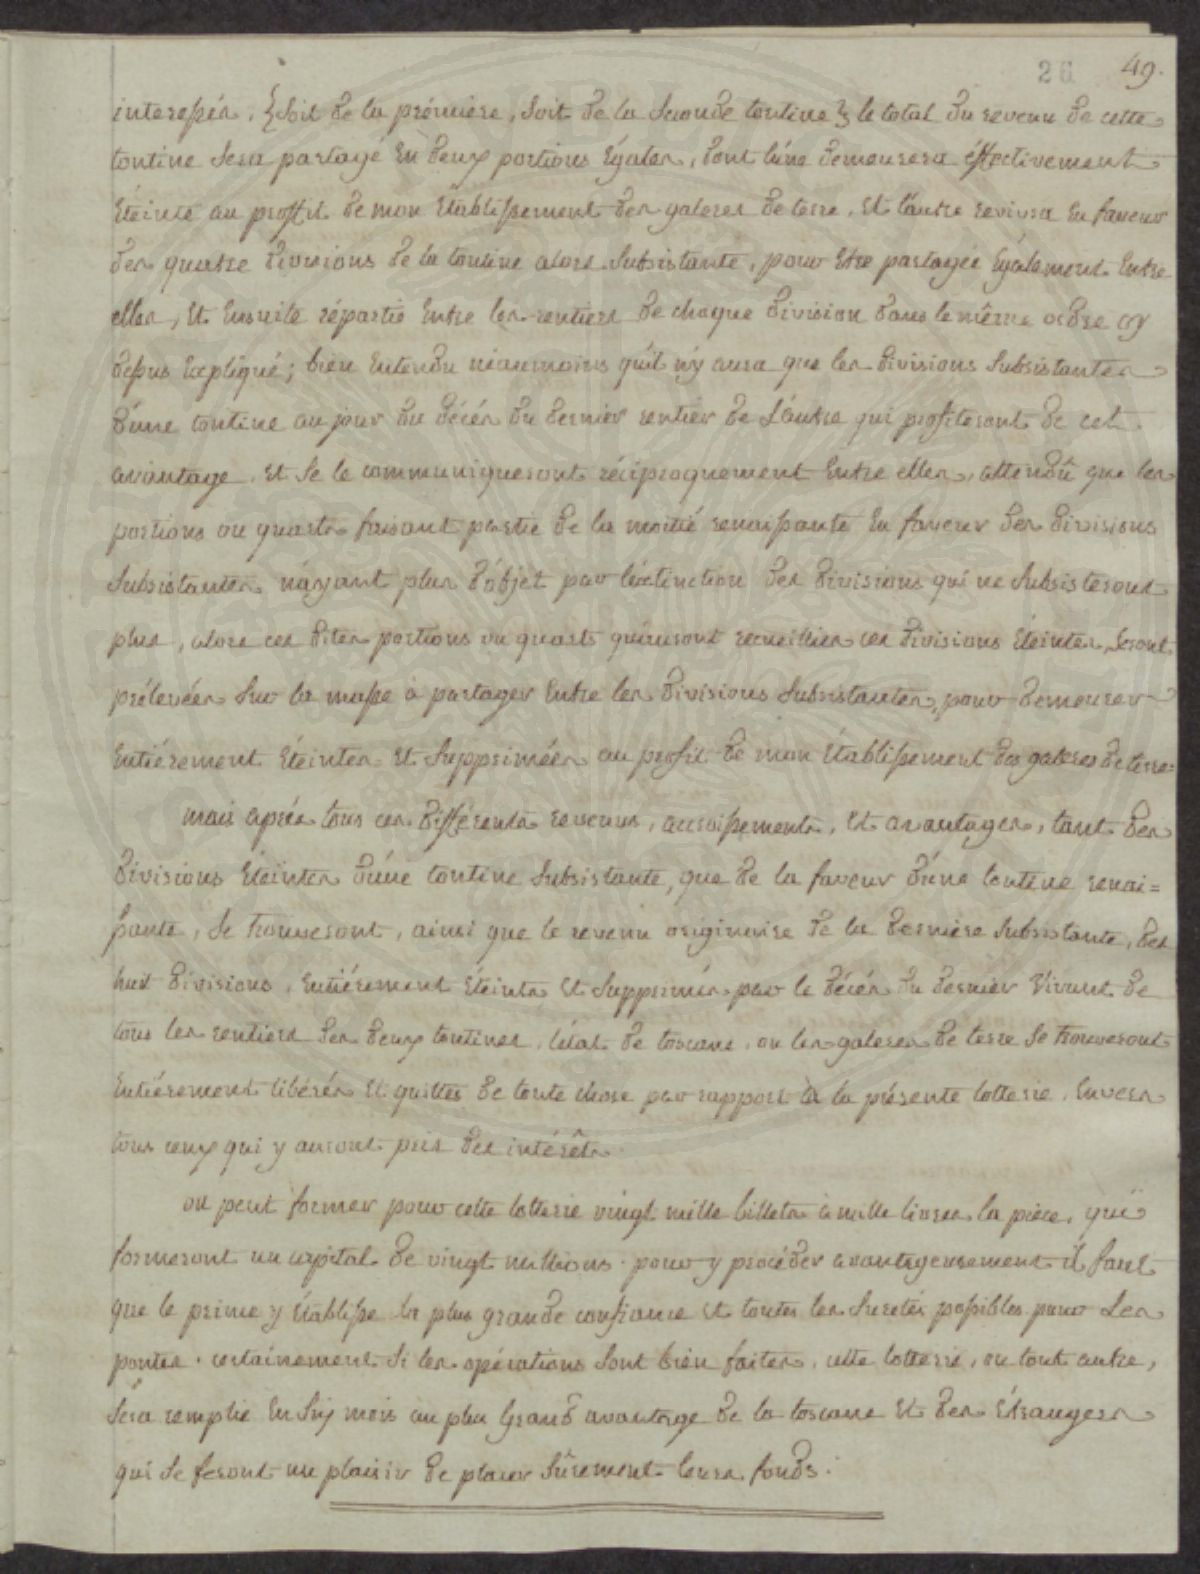 26 49.
interessés, {soit de la prémiere, soit de la seconde tontine} le total du revenu de cette
tontine sera partagé en deux portions égales, dont l'úne demeurera éffectivement
éteinte au proffit de mon etablissement des galeres de terre, et l'autre revivra en faveur
des quatre divisions de la tontine alors subsistante, pour etre partagée également entre
elles, et ensuite répartie entre les rentiers de chaque division dans le même ordre cy
dessus expliqué; bien entendu néanmoins qu'il n'y aura que les divisions subsistantes
d'úne tontine au jour du décés du dernier rentier de l'áutre qui profiteront de cet
avantage, et se le communiqueront réciproquement entre elles, attendû que les
portions ou quarts faisant partie de la moitié renaissante en faveur des divisions
subsistantes, n'áyant plus d'óbjet par l'éxtinction des divisions qui ne subsisteront
plus, alors ces dites portions ou quarts qu'auront recueillies ces divisions éteintes, seront
prélevées sur la masse à partager entre les divisions subsistantes, pour demeurer
entiérement éteintes et supprimées au profit de mon établissement des galeres de terre=
mais aprés tous ces différents revenus, accroissements, et avantages, tant des
divisions éteintes d'úne tontine subsistante, que de la faveur d'úne tontine renai=
ssante, se trouveront, ainsi que le revenu originaire de la derniere subsistante, des
huit divisions, entiérement éteints et supprimés par le décés du dernier vivant de
tous les rentiers des deux tontines, l'état de toscane, ou les galeres de terre se trouveront
entiérement libérés et quittes de toute chose par rapport à la présente lotterie, envers
tous ceux qui y auront pris des intérêts.
on peut former pour cette lotterie vingt mille billets à mille livres la piece, qui
formeront un capital de vingt millions. pour y procéder avantageusement il faut
que le prince y établisse la plus grande confiance et toutes les suretés possibles pour les
pontes. certainement si les opérations sont bien faites, cette lotterie, ou tout autre,
sera remplie en six mois au plus grand avantage de la toscane et des étrangers
qui se feront un plaisir de placer sûrement leurs fonds.